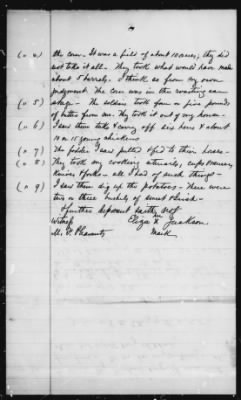 (no 4) the corn. It was a field of about 10 acres; they did
not take it all. They took what would have made
about 5 barrels. I think so from my own
judgment. The corn was in the roasting ear
(no 5) stage - The soldiers took four or five pounds
of butter from me. They took it out of my house -
(no 6) I saw them take & carry off six hens & about
10 or 15 young chickens
(no 7) The fodder I saw pulled & fed to their horses -
(no 8) They took my cooking utensils, cups,
knives & forks - all I had of such things -
(no 9) I saw them dig up the potatoes - There were
two or three bushels of sweet & Irish -
& further deponent saith not
Witness Eliza X Jackson
mark